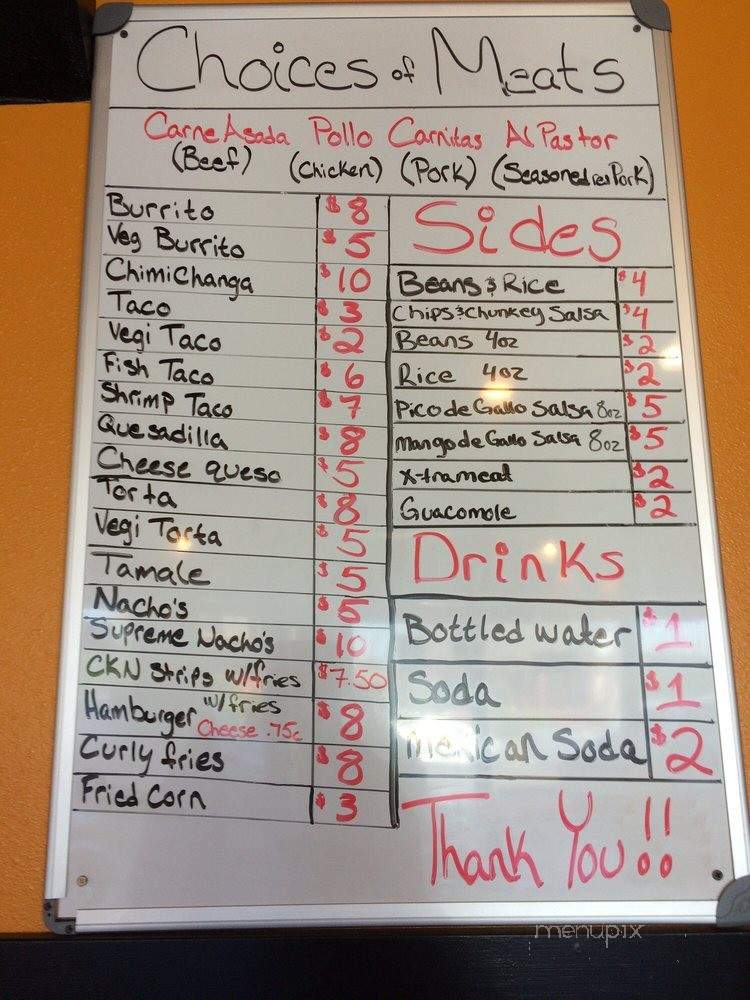 Choices of Meats
Carne Asada Pollo Carnitas Al Pastor
(Beef) (Chicken) (Pork) (Seasoned Pork)
Burrito $8
Veg Burrito $5
ChimiChanga $10
Taco $3
Vegi Taco $2
Fish Taco $6
Shrimp Taco $7
Quesadilla $8
Cheese queso $5
Torta $8
Vegi Torta $5
Tamale $5
Nacho's $5
Supreme Nacho's $10
CKN Strips w/fries $7.50
Hamburger w/fries $8
Cheese .75c
Curly fries $8
Fried Corn $3
Sides
Beans & Rice $4
Chips & Chunkey Salsa $4
Beans 4oz $2
Rice 4oz $2
Pico de Gallo Salsa 8oz $5
Mango de Gallo Salsa 8oz $5
X-trameat $2
Guacomole $2
Drinks
Bottled water $1
Soda $1
Mexican Soda $2
Thank You!!
menupix